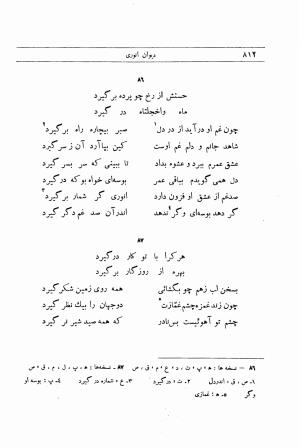 ۸۱۲ دیوان انوری
۸۶
حسنش از رخ چو پرده برگیرد
ماه واخجلتاه درگیرد
چون غم او درآید از در دل۱ صبر بیچاره راه برگیرد۲
شاهد جانم و دلم غم اوست کین بپاآرد آن ز سرگیرد
عشق عمرم ببرد و عشوه بداد تا ببینی که سر بسر گیرد
دل همی گویدم بباقی عمر بوسه‌ای خواه بو که درگیرد
صدغم از عشق او فزون دارد انوری گر شمار برگیرد۳
گر دهد بوسه‌ای وگر۴ ندهد اندرآن صد غم دگر گیرد
۸۷
هرکرا با تو کار درگیرد
بهره از روزگار برگیرد
بسخن لب زهم چو بگشائی همه روی زمین شکر گیرد
چون زند غمزه چشم غمازت۵ دوجهان را بیک نظر گیرد
چشم تو آهوئیست بس نادر که همه صید شیر نر گیرد
۸۶ – نسخه‌ها : ه ، پ ، ت ، د ، ع ، م ، ق ، ص ۸۷ ـ نسخه‌ها : ه ، پ ، ل ، م ، ق ، ص
۱ـ ص ، ق ، اندردل ۲ـ ت : درگیرد ۳ـ ع : شماره درگیرد ۴ـ پ : بوسه او
وگر ۵ـ ه : غمازی